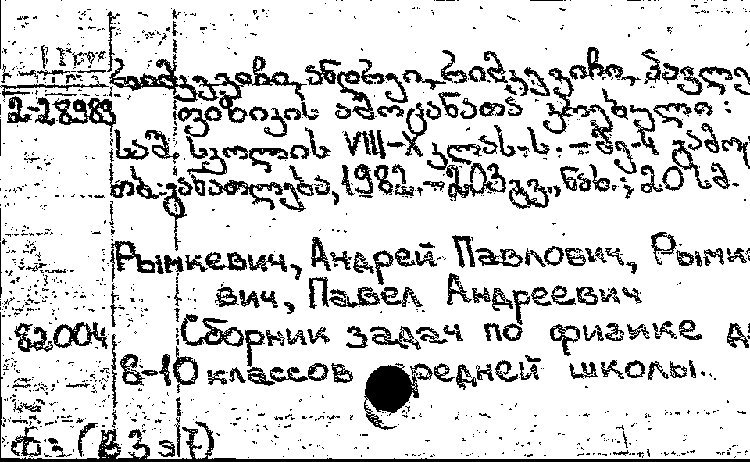 1 Груз
რიმკევიჩი, ანდრეი, რიმკევიჩი, პავლე
2-28989 ფიზიკის ამოცანათა კრებული:
საშ. სკოლის VIII-X კლას-ს. – მე-4 გამოც
თბ.: განათლება, 1982. – 203 გვ., ნახ.; 20 სმ.
Рымкевич, Андрей Павлович, Рымке
вич, Павел Андреевич
82.004 Сборник задач по физике д
8-10 классов средней школы.